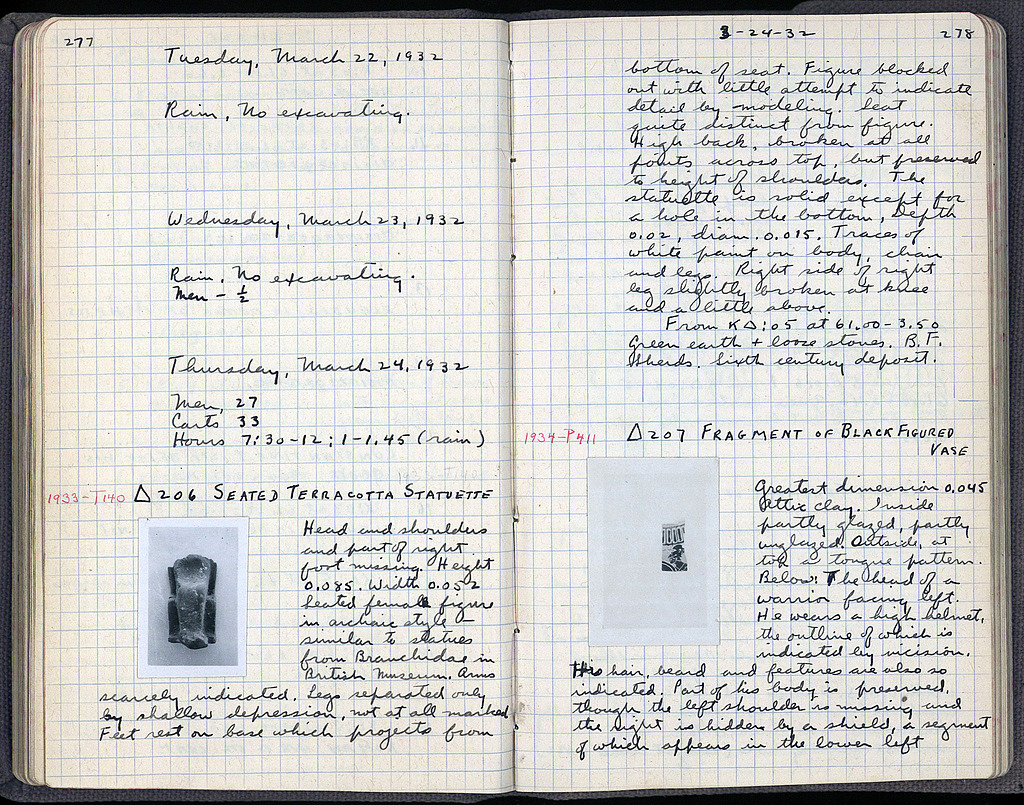 277
Tuesday, March 22, 1932
Rain, No excavating.
Wednesday, March 23, 1932
Rain, No excavating.
Men - ½
Thursday, March 24, 1932
Men, 27
Carts 33
Hours 7:30-12; 1-1.45 (rain)
1933-T140 Δ206 SEATED TERRACOTTA STATUETTE
Head and shoulders
and part of right
foot missing. Height
0.085. Width 0.052
Seated female figure
in archaic style -
similar to statues
from Branchidae in
British Museum. Arms
scarcely indicated. Legs separated only
by shallow depression, not at all marked
Feet rest on base which projects from
3-24-32
278
bottom of seat. Figure blocked
out with little attempt to indicate
detail by modeling. Seat
quite distinct from figure.
High back, broken at all
points across top, but preserved
to height of shoulders. The
statuette is solid except for
a hole in the bottom, Depth
0.02, diam. 0.015. Traces of
white paint on body, chair
and legs. Right side of right
leg slightly broken at knee
and a little above.
From KΔ:05 at 61.00-3.50
Green earth + loose stones. B.F.
Sherds. Sixth century deposit.
1934-P411 Δ207 FRAGMENT OF BLACK FIGURED
VASE
Greatest dimension 0.045
Attic clay. Inside
partly glazed, partly
unglazed. Outside, at
top a tongue pattern.
Below: The head of a
warrior facing left.
He wears a high helmet,
the outline of which is
indicated by incision.
His hair, beard and features are also so
indicated. Part of his body is preserved,
though the left shoulder is missing and
the right is hidden by a shield, a segment
of which appears in the lower left